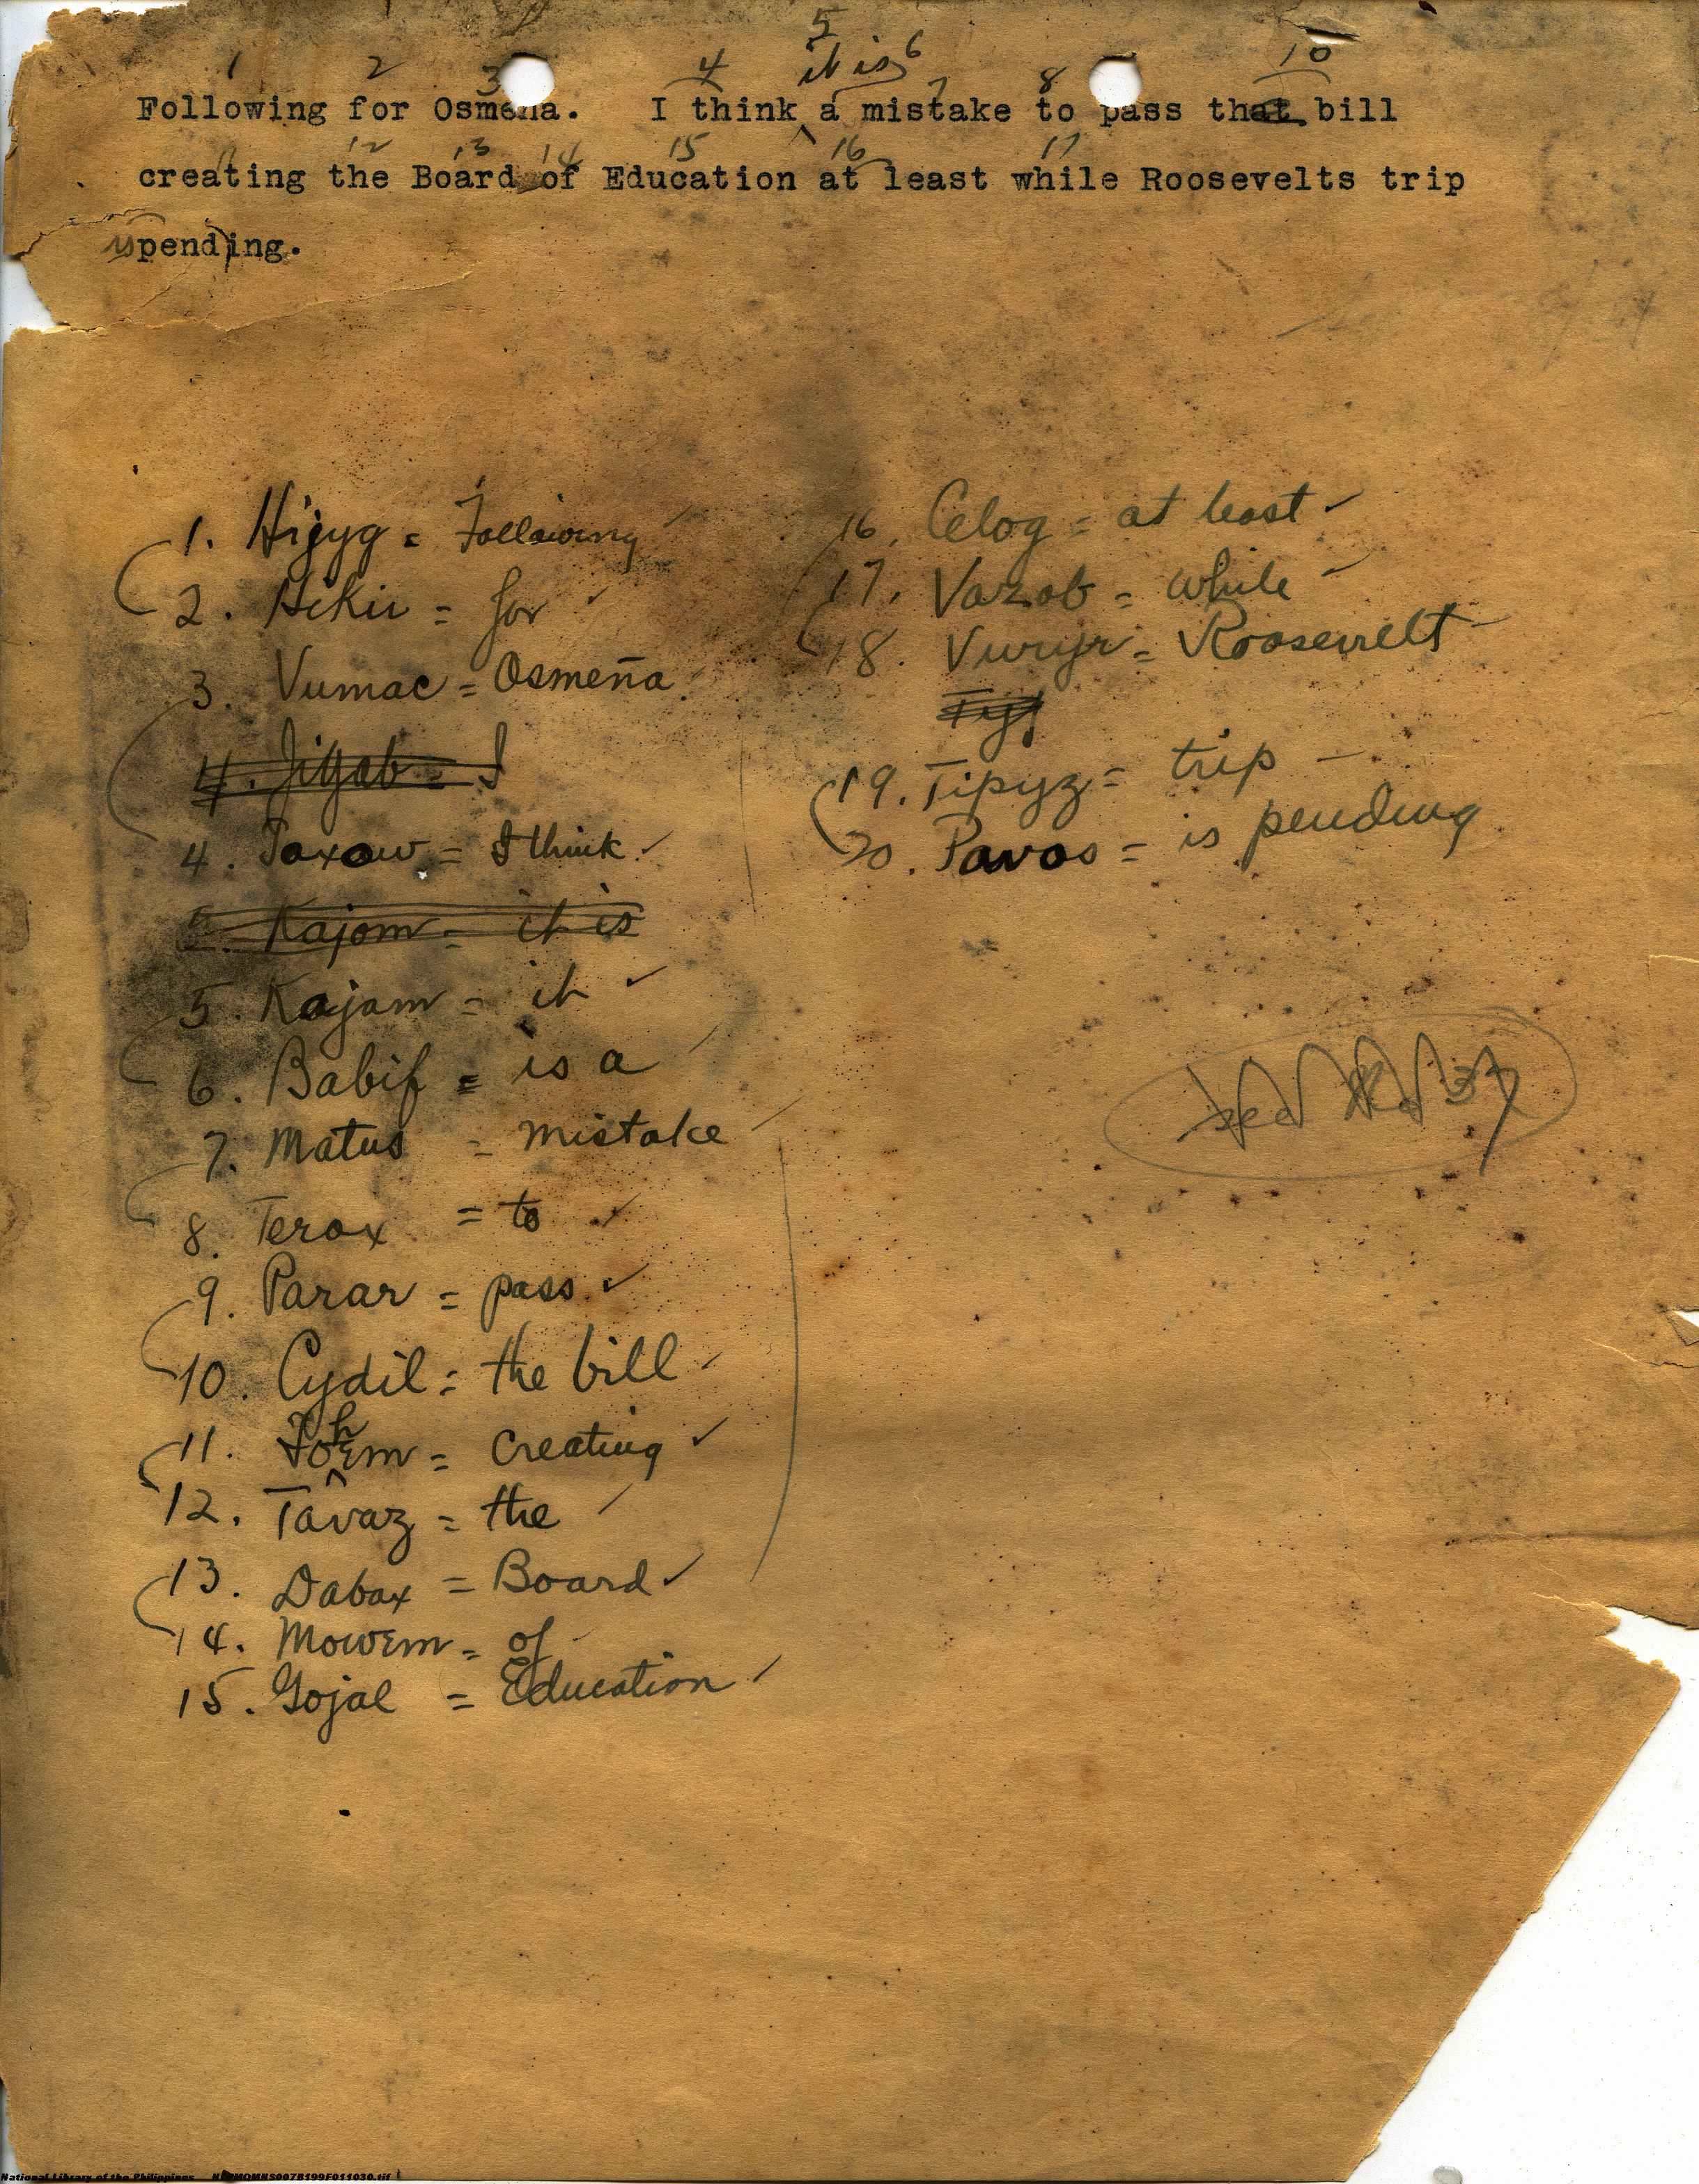 1 2 3 4 5 it is 6 7 8 10
Following for Osmena. I think a mistake to pass that bill
12 13 14 15 16 17
creating the Board of Education at least while Roosevelts trip
is pending.
1. Hijyg = Following
2. Hekir = for
3. Vumac = Osmeña
4. Jitab = I
4. Taxow = I think
5. Kajom = it is
5. Kajam = it
6. Babif = is a
7. Matus = mistake
8. Terox = to
9. Parar = pass
10. Cydil = the bill
11. = creating
12. Tavaz = the
13. Dabax = Board
14. Mowem = of
15. Gojal = Education
16. Celog = at least
17. Vazob = while
18. Vuryr = Roosevelt
Ty
19. Tipyz = trip
20. Pavos = is pending
National Library of the Philippines